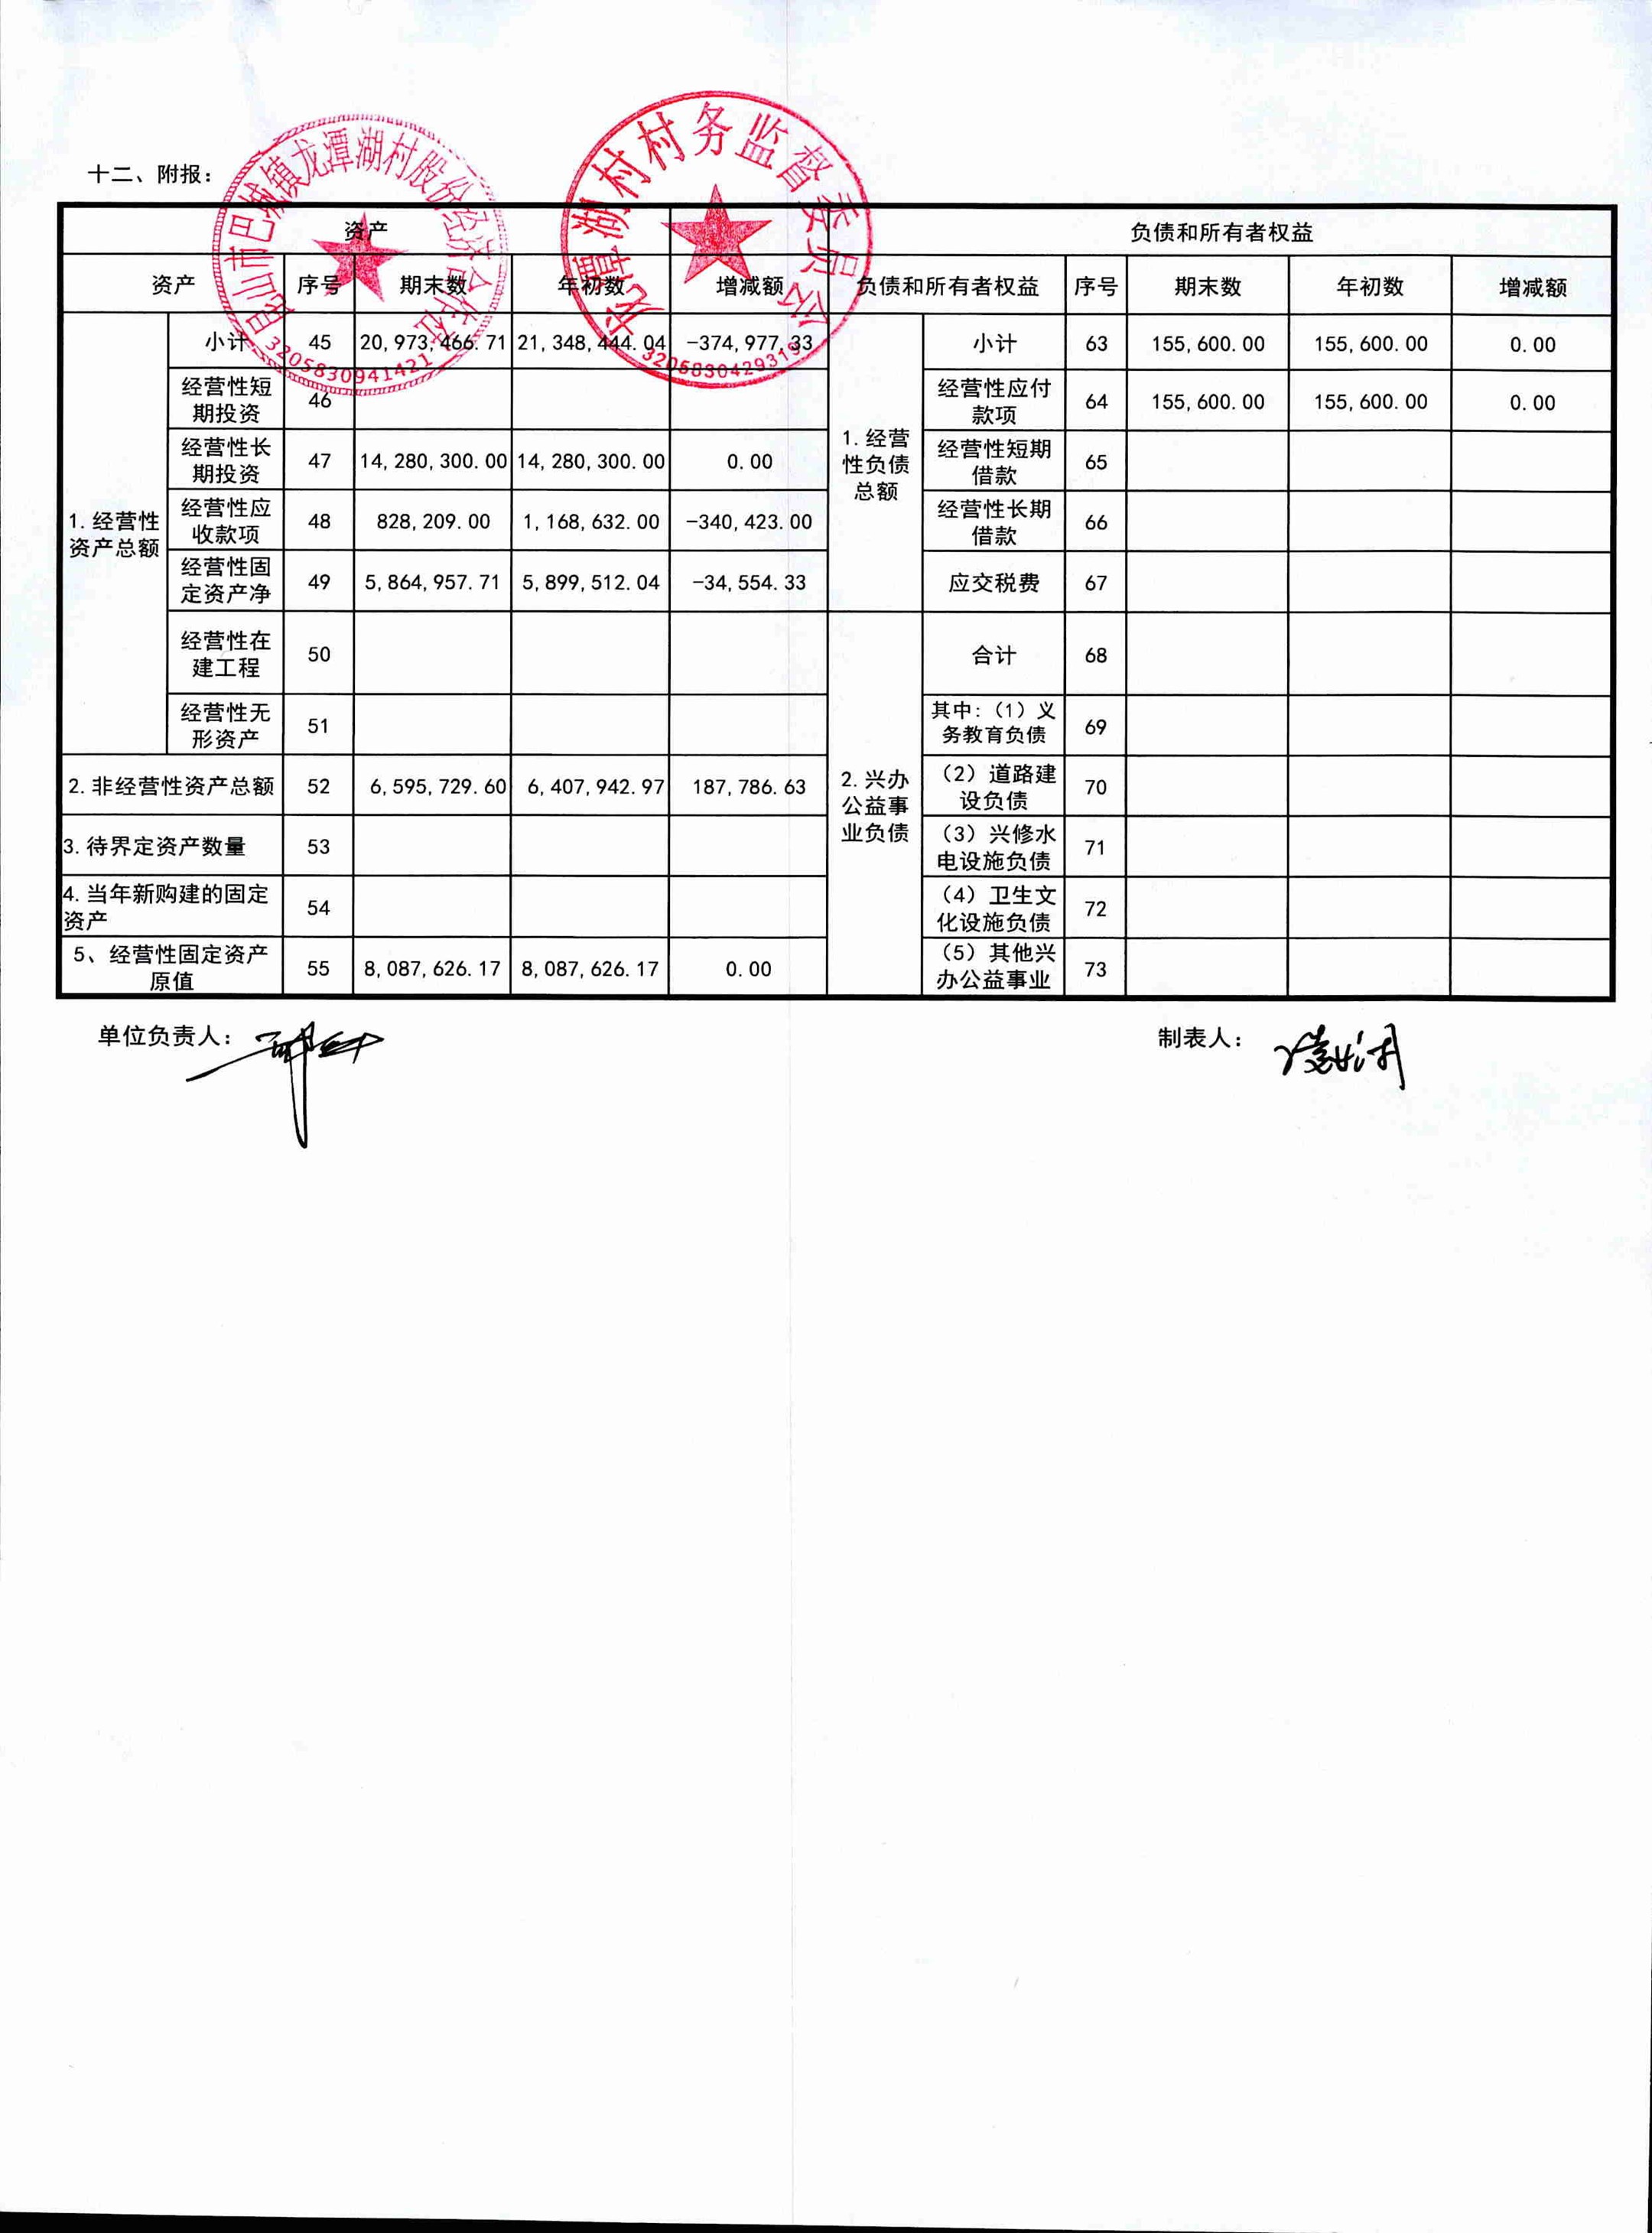 昆山市巴城镇龙潭湖村股份经济合作社
3205830941421
龙潭湖村村务监督委员会
3205830429319
十二、附报：
资产 负债和所有者权益
资产 序号 期末数 年初数 增减额 负债和所有者权益 序号 期末数 年初数 增减额
1.经营性资产总额 小计 45 20,973,466.71 21,348,444.04 -374,977.33 1.经营性负债总额 小计 63 155,600.00 155,600.00 0.00
经营性短期投资 46 经营性应付款项 64 155,600.00 155,600.00 0.00
经营性长期投资 47 14,280,300.00 14,280,300.00 0.00 经营性短期借款 65
经营性应收款项 48 828,209.00 1,168,632.00 -340,423.00 经营性长期借款 66
经营性固定资产净 49 5,864,957.71 5,899,512.04 -34,554.33 应交税费 67
经营性在建工程 50 2.兴办公益事业负债 合计 68
经营性无形资产 51 其中:（1）义务教育负债 69
2.非经营性资产总额 52 6,595,729.60 6,407,942.97 187,786.63 （2）道路建设负债 70
3.待界定资产数量 53 （3）兴修水电设施负债 71
4.当年新购建的固定资产 54 （4）卫生文化设施负债 72
5、经营性固定资产原值 55 8,087,626.17 8,087,626.17 0.00 （5）其他兴办公益事业 73
单位负责人： 制表人：